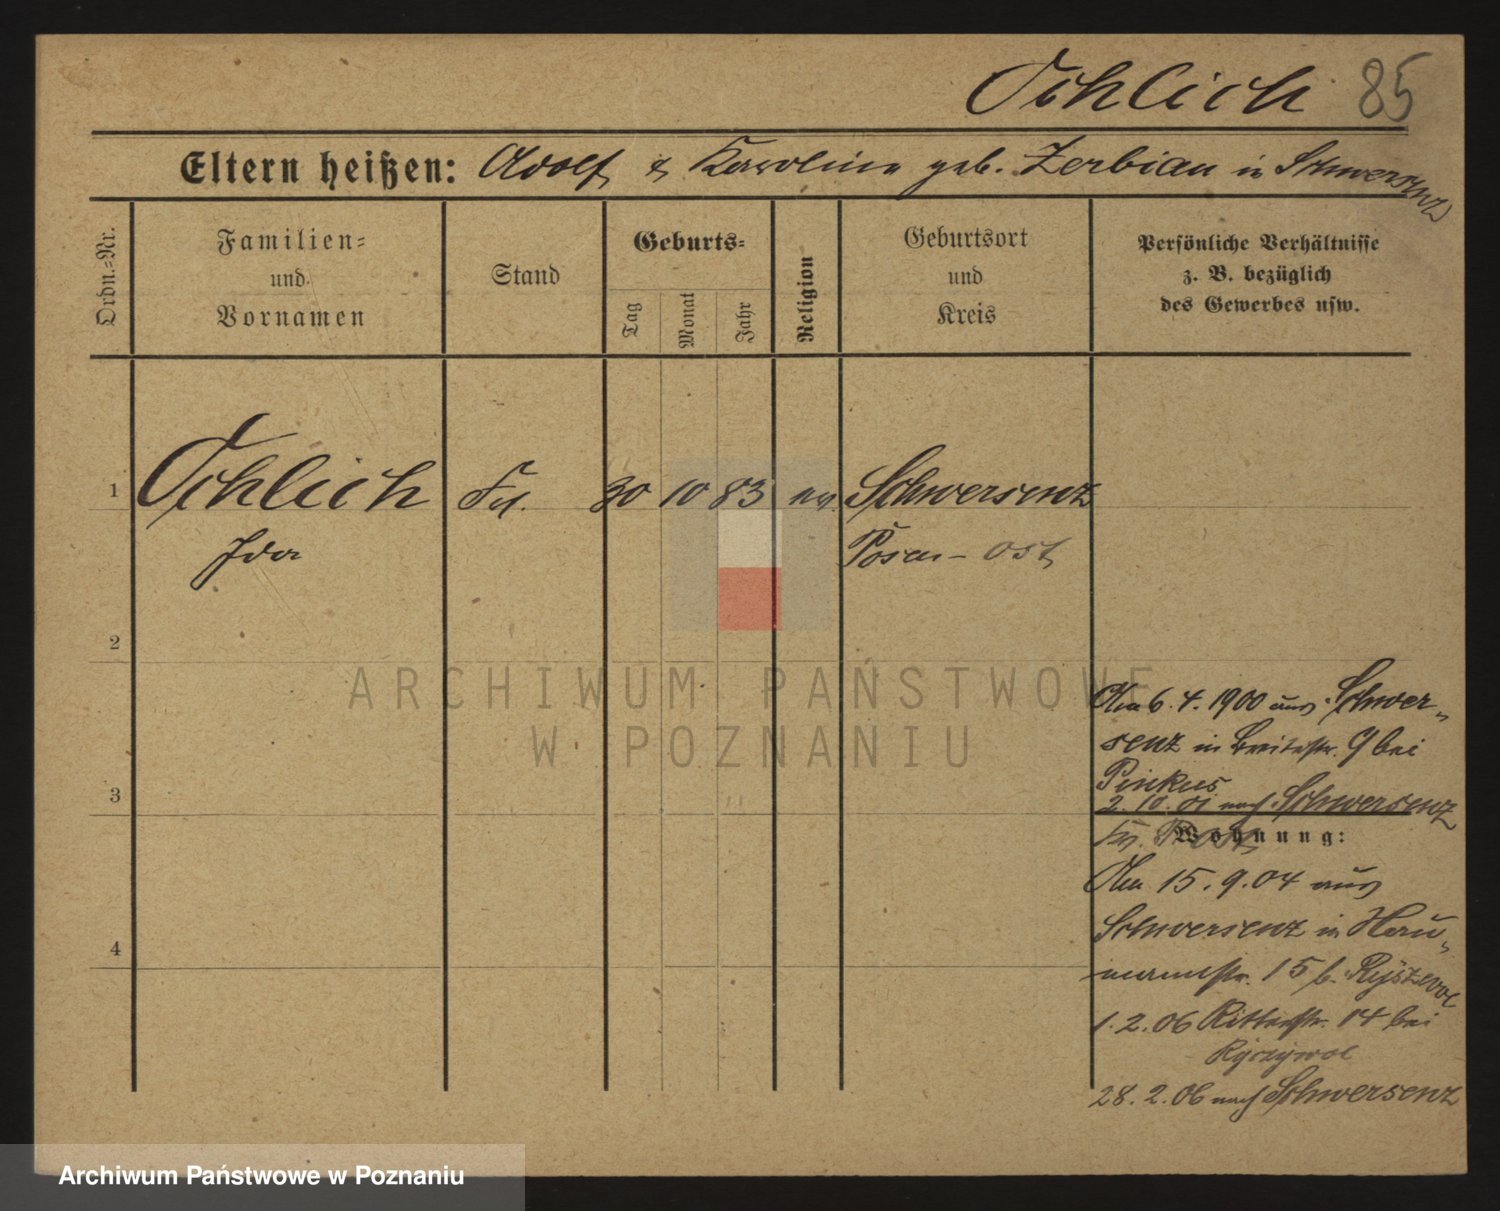 Oehlich 85
Eltern heißen: Adolf & Karoline geb. Zerbian in Schwersenz
Ordn.=Nr.
Familien=
und
Vornamen
Stand
Geburts=
Tag
Monat
Jahr
Religion
Geburtsort
und
Kreis
Persönliche Verhältnisse
z. B. bezüglich
des Gewerbes usw.
1 Oehlich Frl. 30 10 83 ev. Schwersenz
Ida Posen-Ost
2
3
4
6.4.1900 aus Schwer-
senz in Breitestr. 9 bei
Pinkus
2.10.01 nach Schwersenz
Wohnung:
15.9.04 aus
Schwersenz in Nau-
mannstr. 15 b.
1.2.06 Ritterstr. 14 bei
Ryczywol
28.2.06 nach Schwersenz
ARCHIWUM PAŃSTWOWE
W POZNANIU
Archiwum Państwowe w Poznaniu